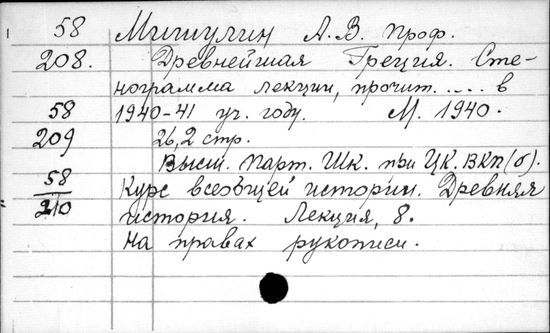 58 Мишулин А. В. проф.
208. Древнейшая Греция. Сте-
нограмма лекции, прочит. .... в
58 1940-41 уч. году. М. 1940.
209 26,2 стр.
Высш. Парт. Шк. при ЦК. ВКП(б).
58 Курс всеобщей истории. Древняя
210 история. Лекция, 8.
На правах рукописи.